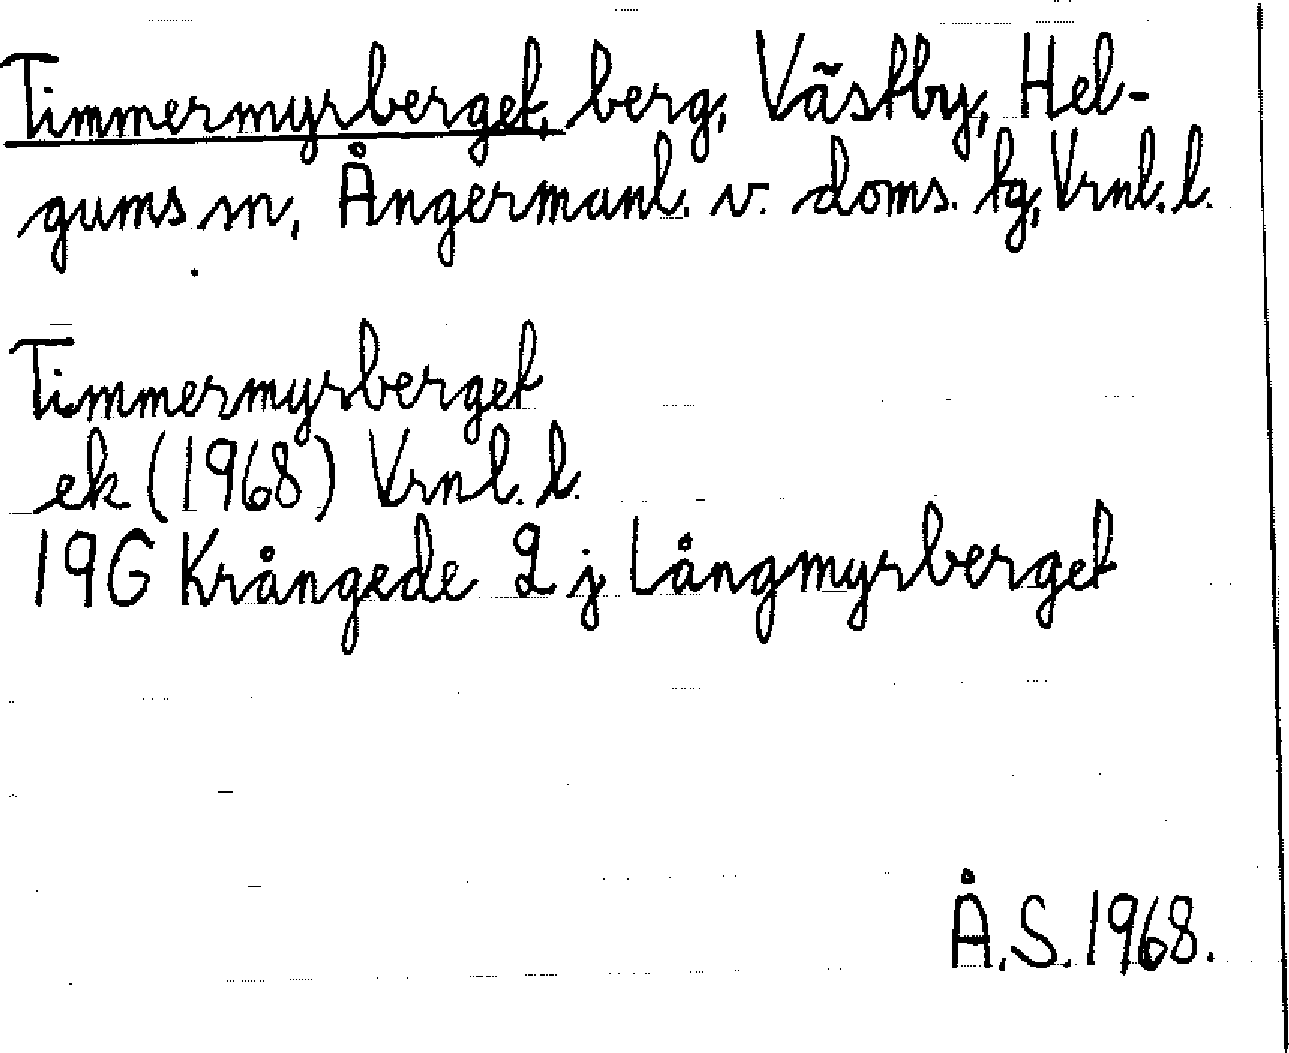 Timmermyrberget, berg, Västby, Hel-
gums sn, Ångermanl. v. doms. fg, Vrnl. l.
Timmermyrberget
ek (1968) Vrnl. l.
19G Krångede 2 j Långmyrberget
Å.S. 1968.